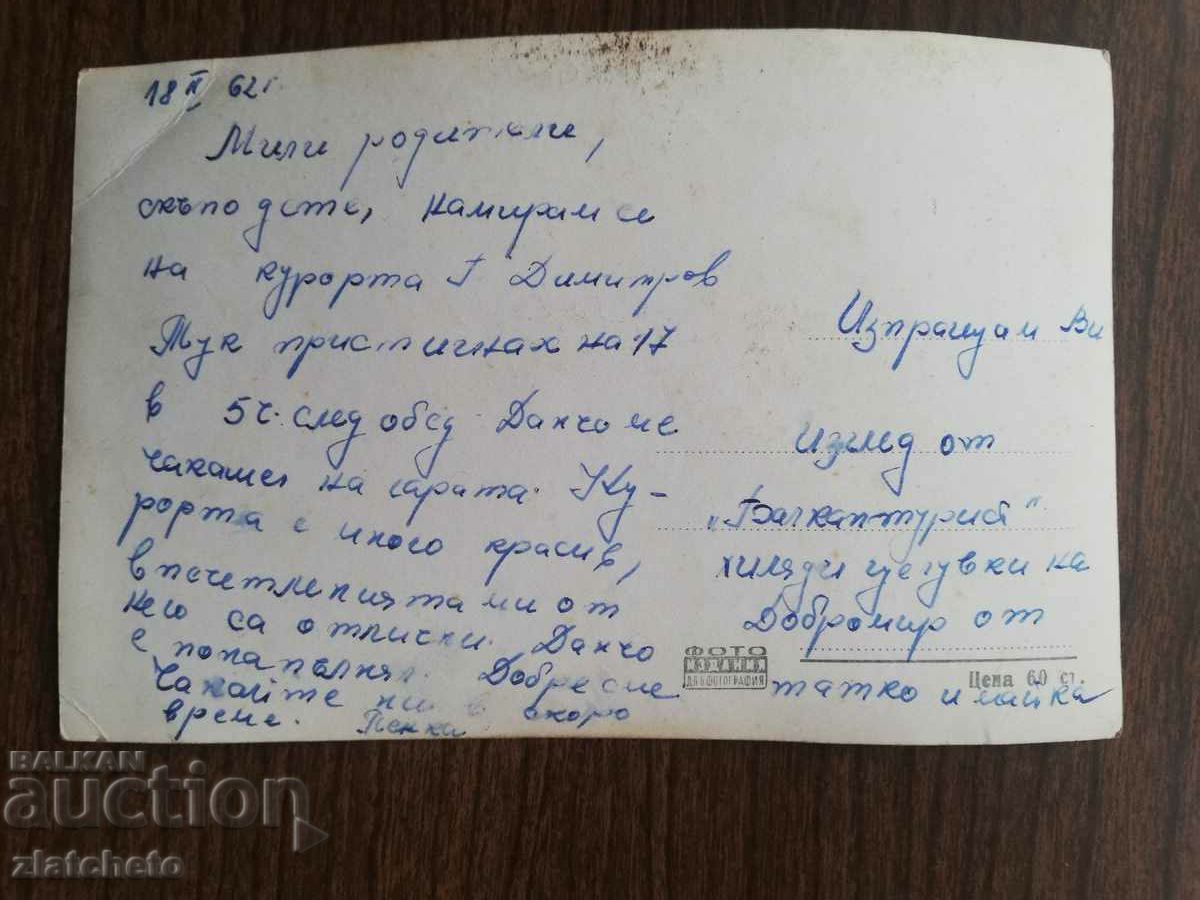 18 II 62 г.
Мили родители,
скъпо дете, намирам се
на курорта Г Димитров
Тук пристигнах на 17
в 5 ч. след обед. Данчо ме
чакаше на гарата. Ку-
рорта е много красив,
впечетленията ми от
него са отлични. Данчо
е попапълнял. Добре сме
Чакайте ни в скоро
време. Пенка
Изпращам Ви
изглед от
„Балкантурист"
хиляди целувки на
Добромир от
татко и майка
ФОТО
ИЗДАНИЯ
ДПК ФОТОГРАФИЯ
Цена 60 ст.
BALKAN
auction
zlatcheto